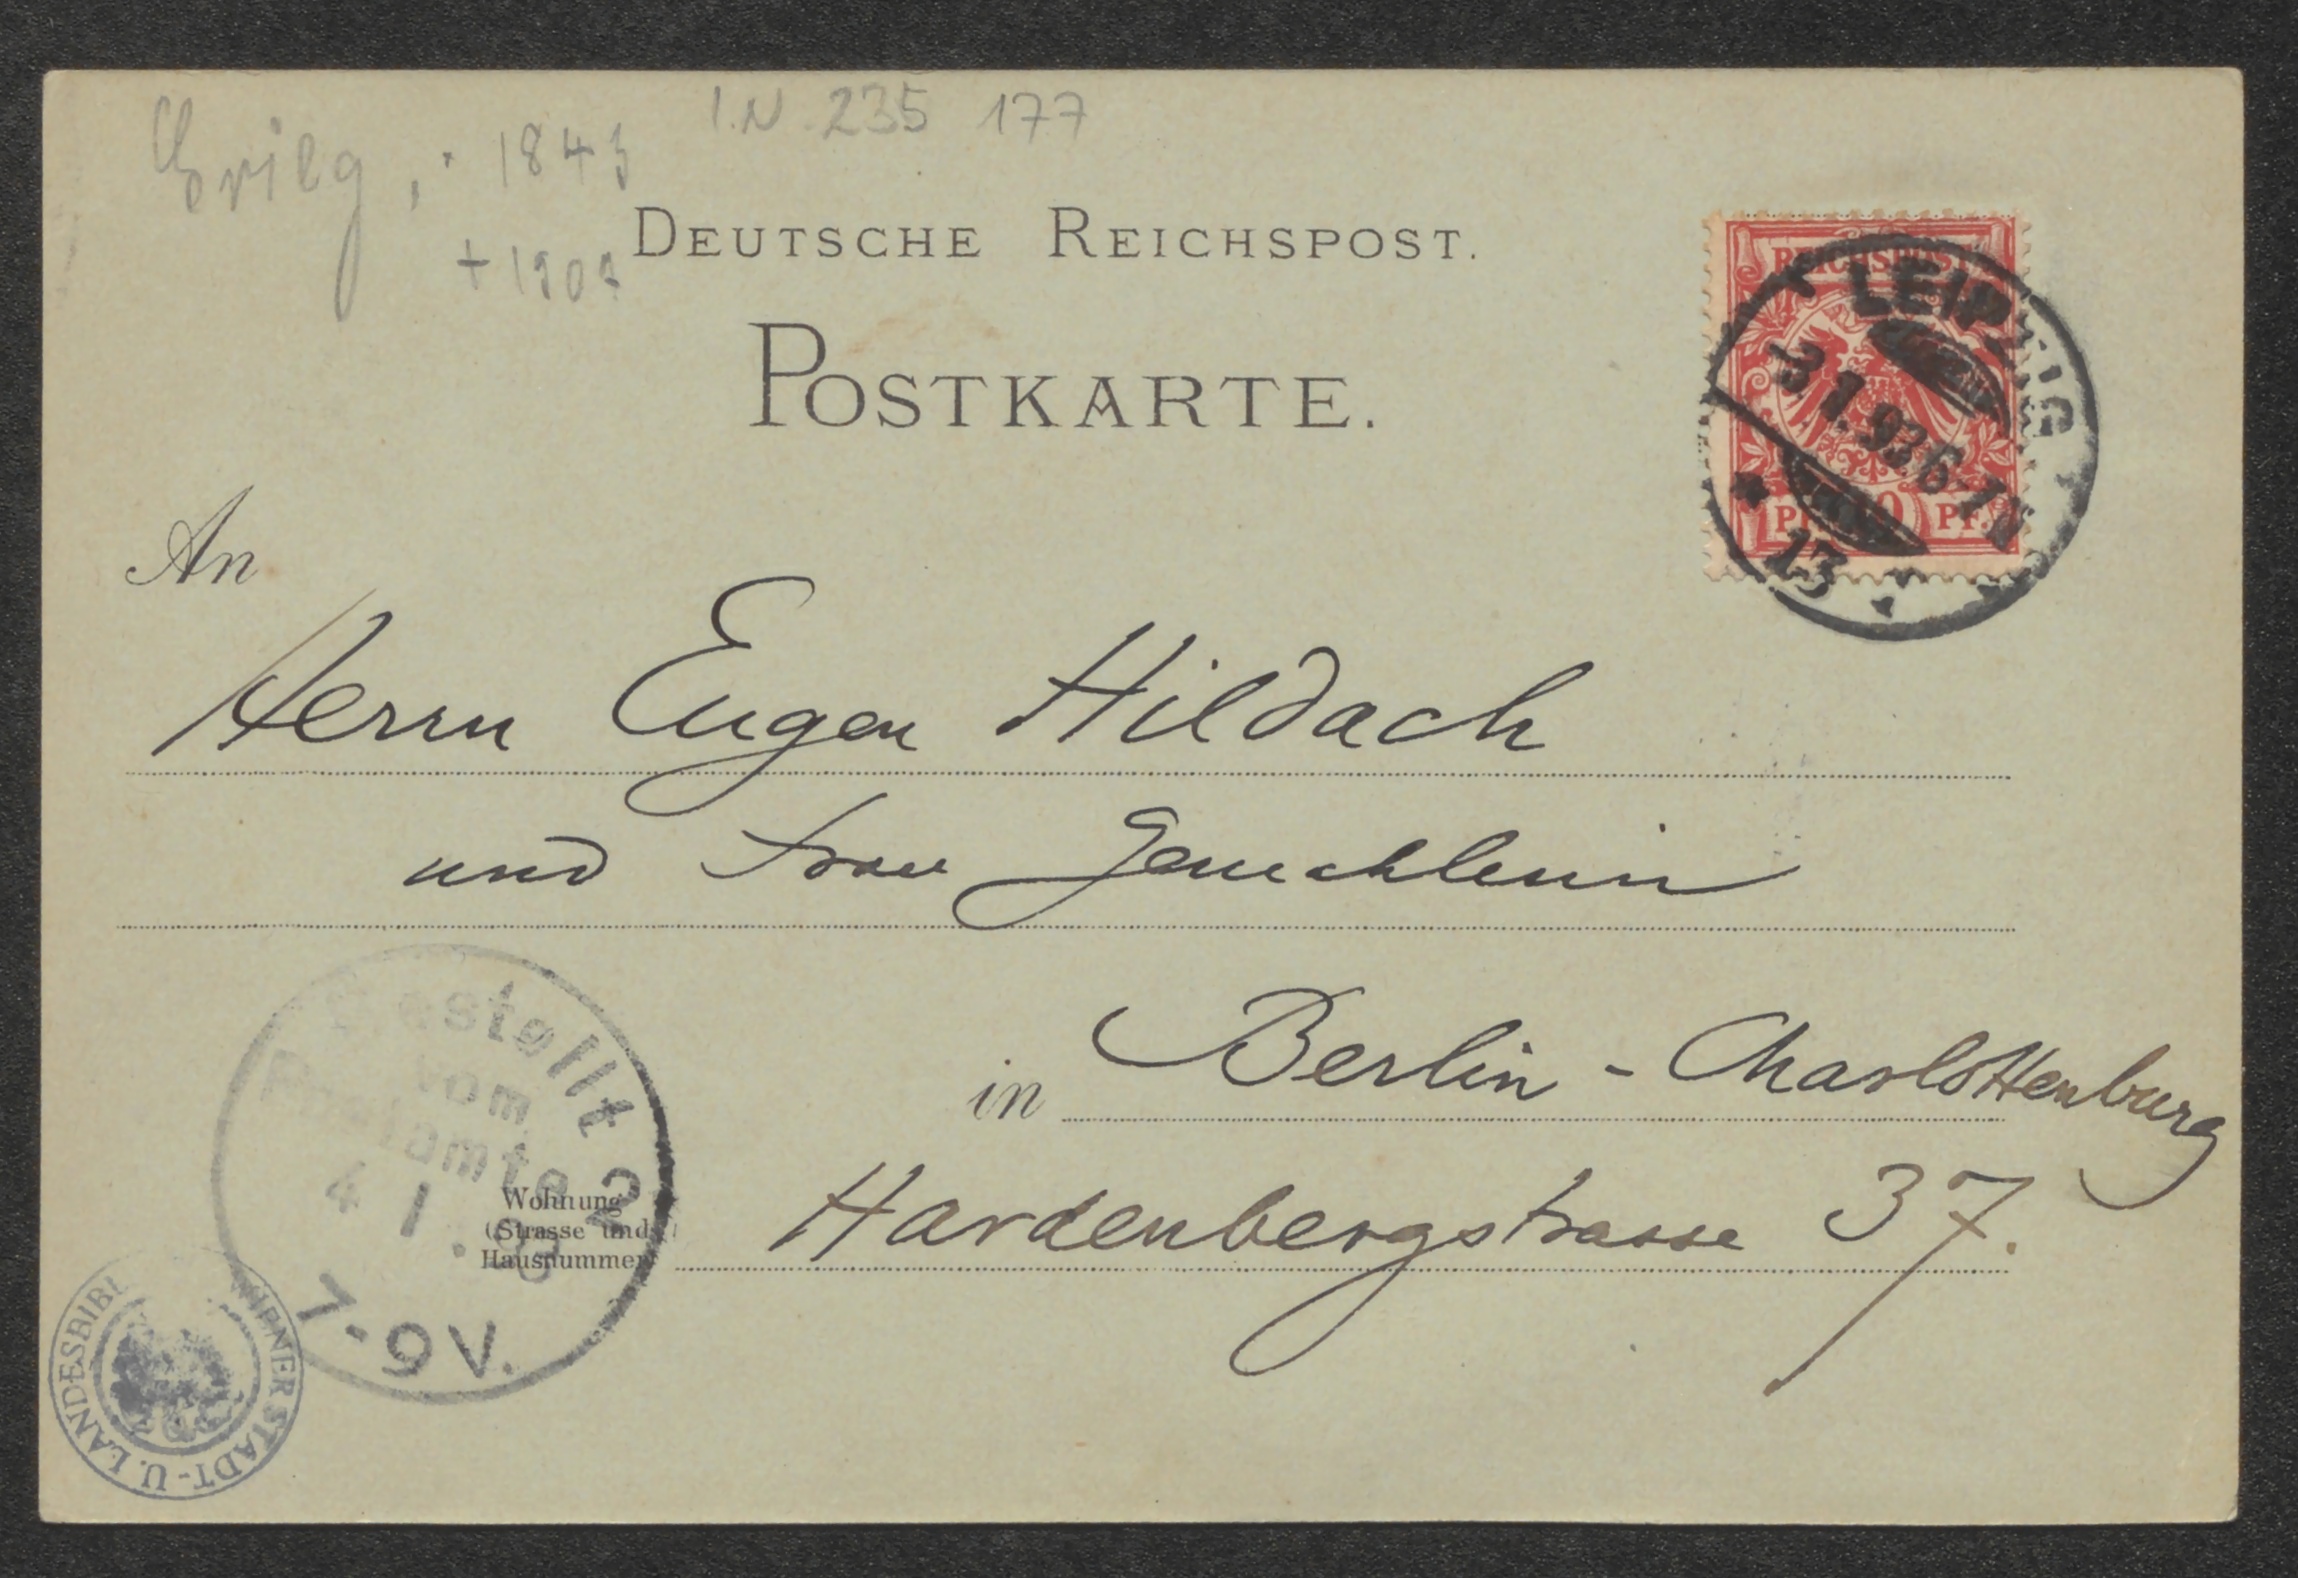 I.N. 235 177
Grieg, * 1843
+ 1907
DEUTSCHE REICHSPOST.
POSTKARTE.
REICHSPOST
PF. 10 PF.
LEIPZIG
-3.1.93.6-7N
13
An
Herrn Eugen Hildach
und Frau Gemahlin
in Berlin - Charlottenburg
Wohnung
(Strasse und
Hausnummer)
Hardenbergstrasse 37.
Bestellt
vom
Postamte 2
4 1
7-9V.
WIENER STADT-U. LANDESBIBL